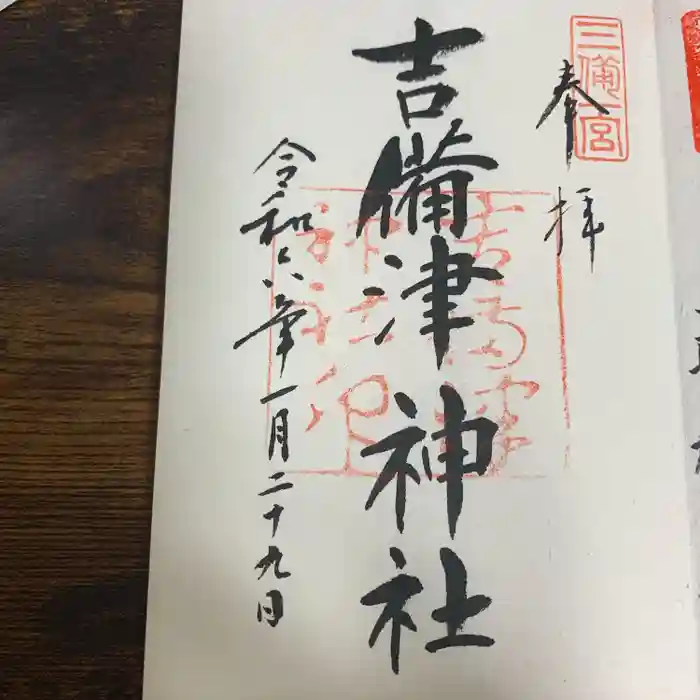 三備一宮
奉拝
吉備津神社
令和六年一月二十九日